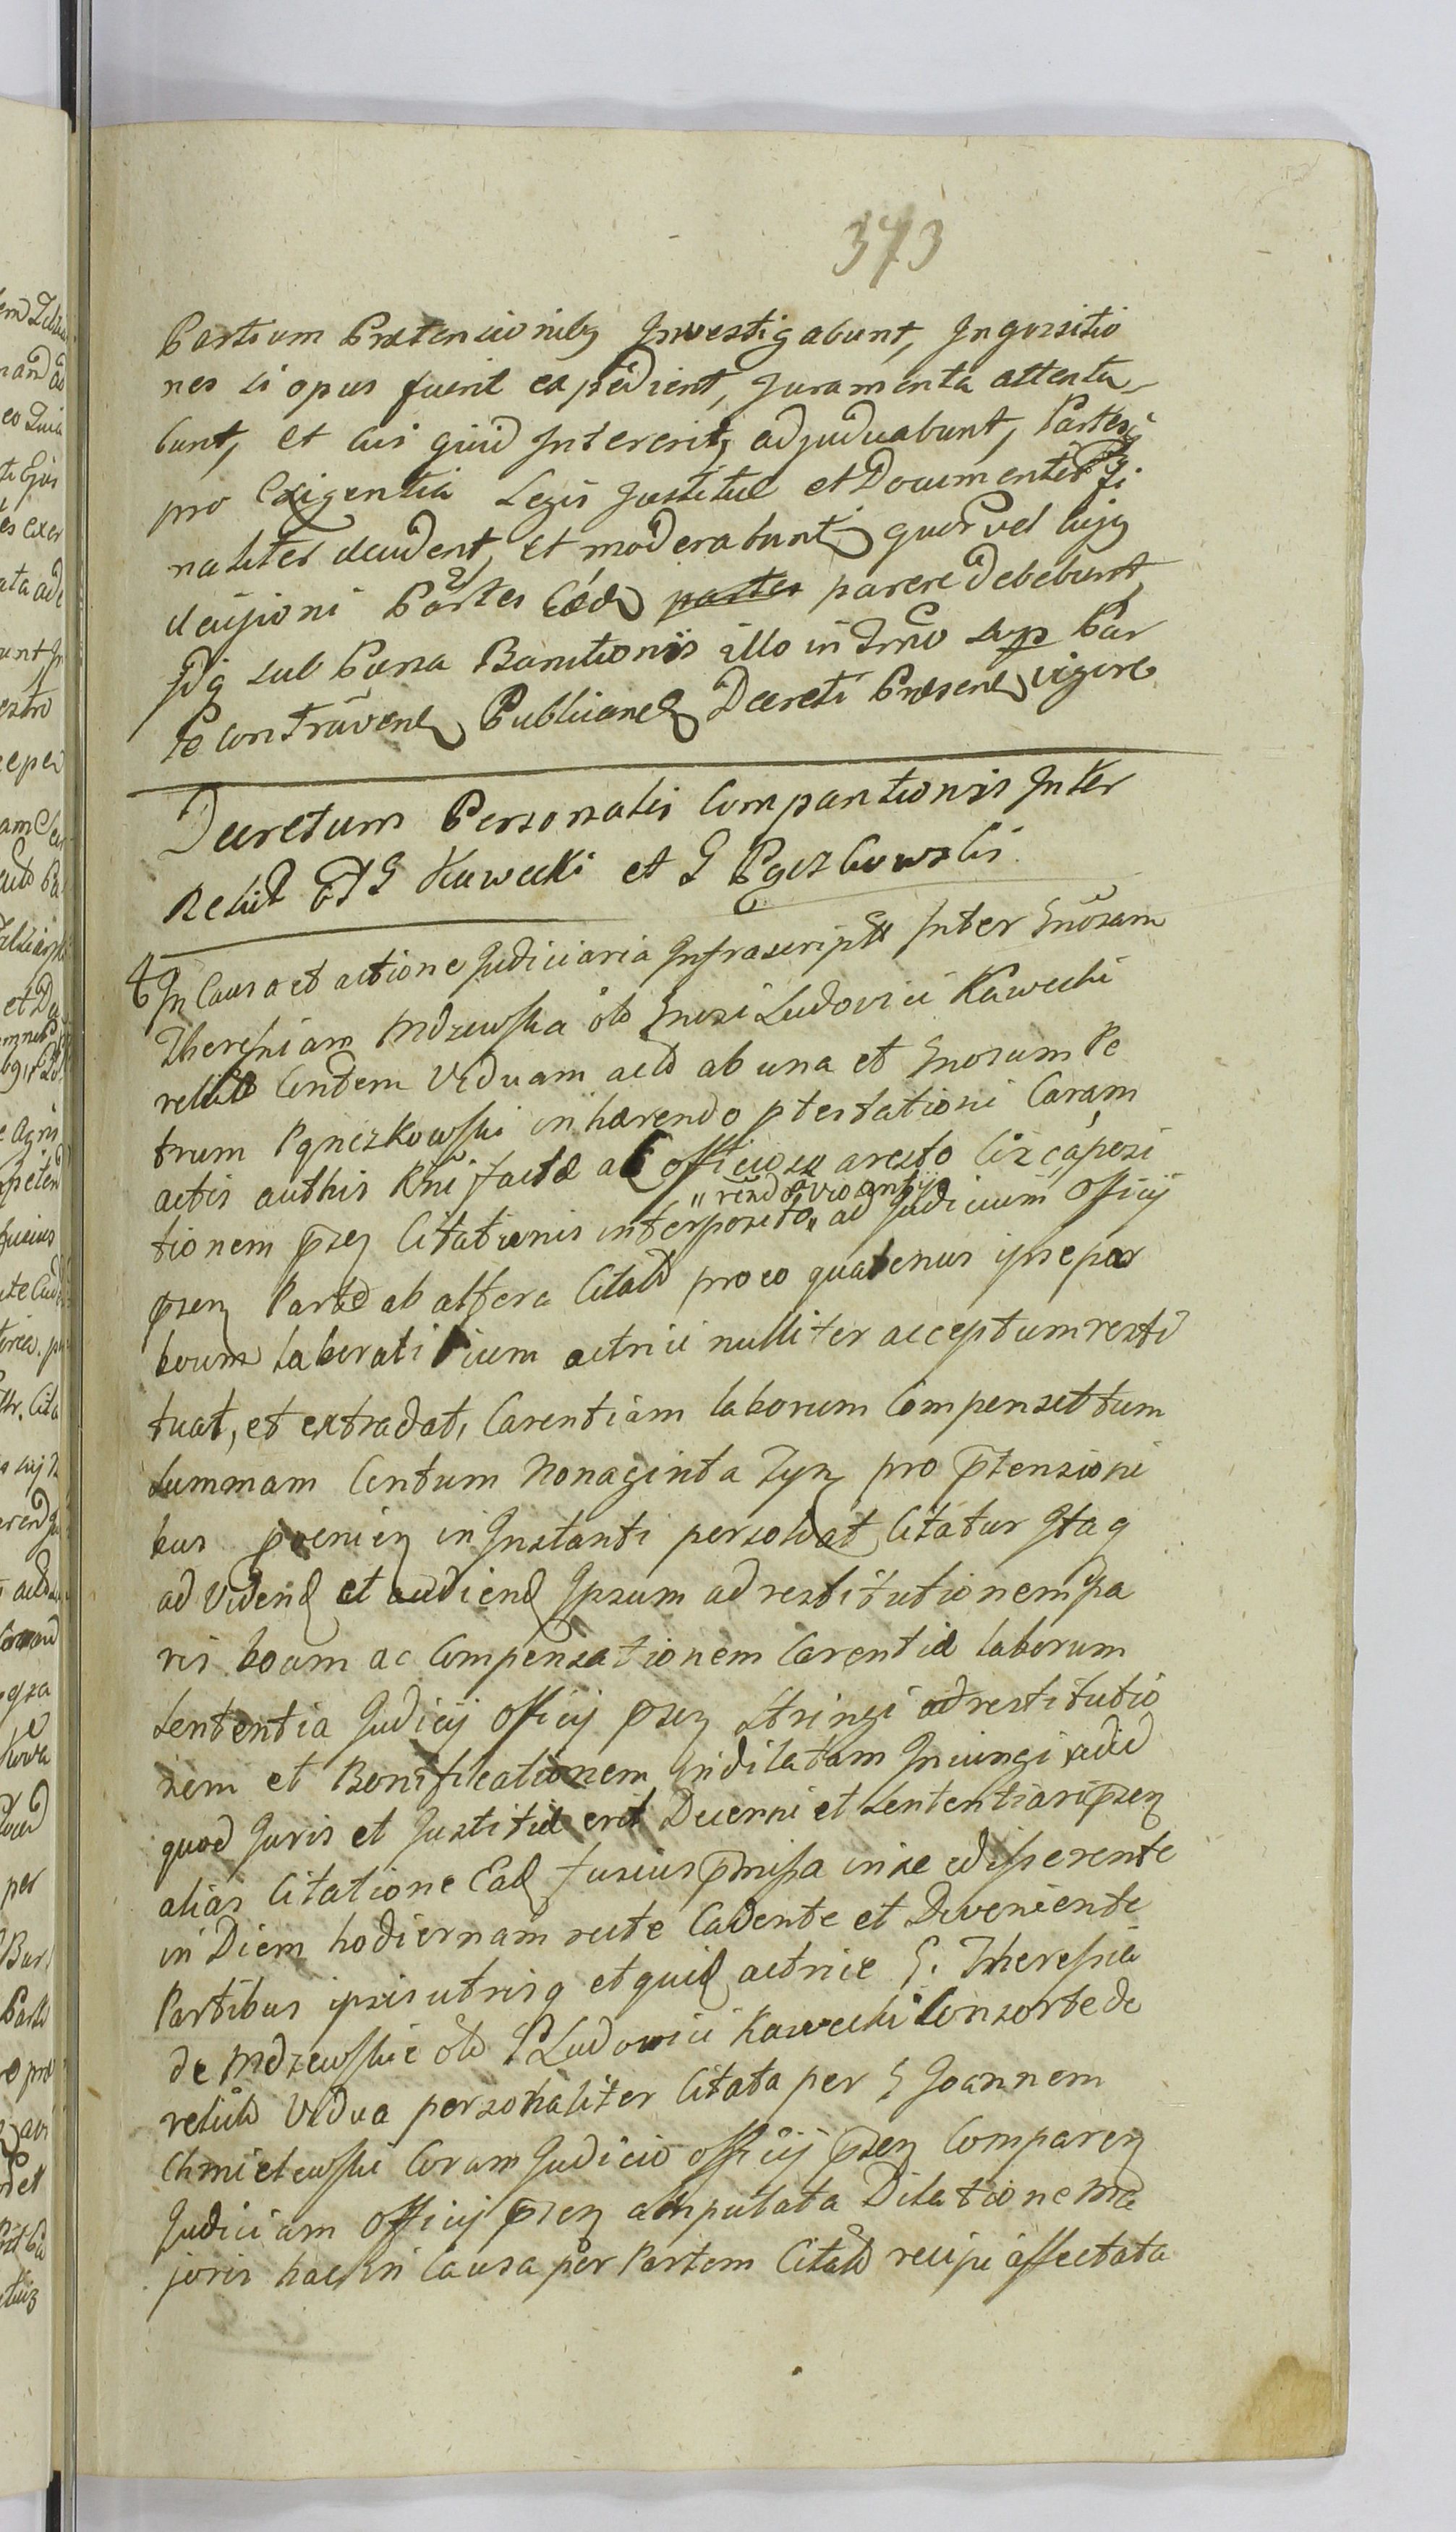 373
Partium Prætensionibq Investigabunt, Inquisitio
nes si opus fuerit expedient, Juramenta attenta-
bunt, et cui quid Intererit, adjudicabunt, Partesq
pro Exigentia Legis Justitiæ et Documentor Fi
naliter decident, et moderabunt quor vel cujq
decisioni Partes Eæd parere debebunt
Idq sub Pœna Banitionis illo in Trno sup Par
te contraven Publicand Decreti Præsen vigore
Decretum Personalis Comparitionis Inter
Relict G Kawecki et G Pgozkowski
In Causa et actione Judiciaria Infrascripta Inter Gnosam
Theresiam Mdzewska olo Gnosi Ludovici Kawecki
relict Consortem Viduam act ab una et Gnosum Pe
trum Pgnezkowski inhærendo ptestationi Coram
actis authis Rni factæ ac officioso aresto
tionem psen Citationis interposito ad Judicium Officij
psen Parte ab altera Citat pro eo quatenus ipse par
boum laborati actrici nulliter acceptum resti
tuat, et extradat, Carentiam laborum Compenset tum
summam Centum Nonaginta Tyn pro ptensioni
bus in Instanti persolvat Citatur Itaq
ad Vidend et audiend Ipsum ad restitutionem pa
ris boum ac Compensationem Carentiæ laborum
Sententia Judicij Officij psen Stringi ad restitutio
nem et Bonificationem Indilatam Iniungi
quod Juris et Justitiæ erit Decerni et sententiari psen
alias Citatione Ead fusius pmissa in se edisserente
in Diem hodiernam recte Cadente et Deveniente
Partibus ipsis utrisq et quid actrice G. Theresia
de Mdzewskie olo G Ludovici Kawecki Consorte de
relicta Vidua personaliter Citata per G Joannem
Chmielewski Coram Judicio officij psen Comparen
Judicium Officij psen amputata Dilatione Ma
joris hac in Causa per Partem Citat recipi affectata